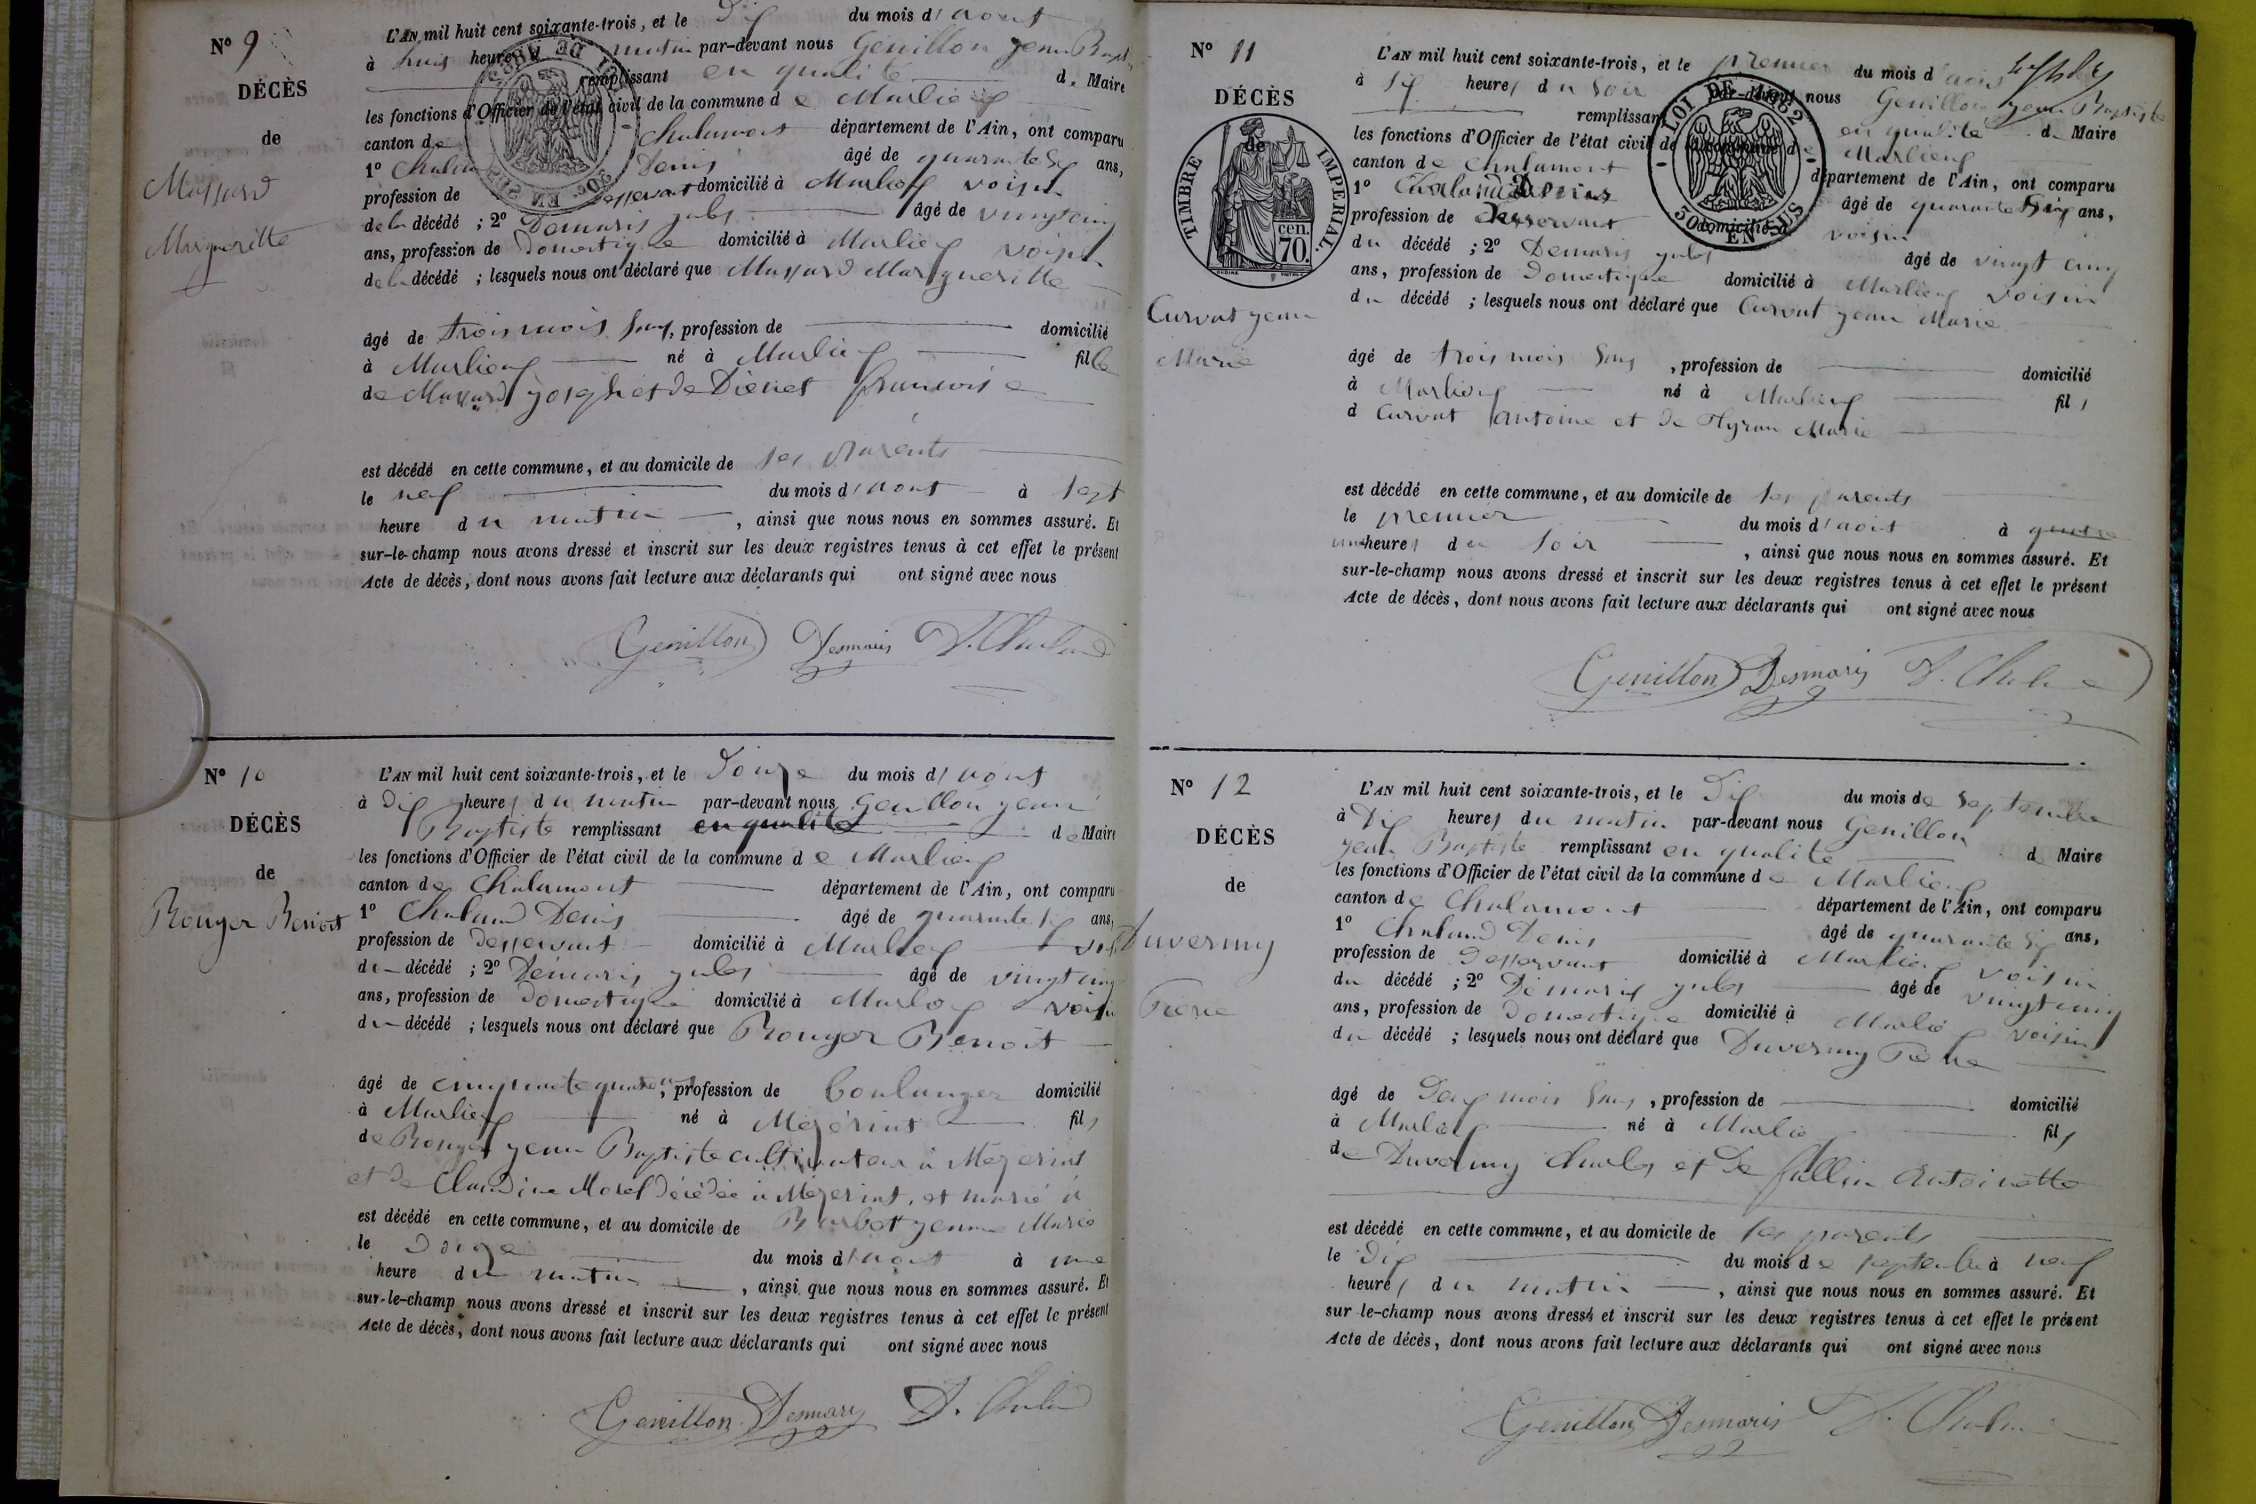 N° 9
DÉCÈS
de
Massard
Margueritte
L'AN mil huit cent soixante-trois, et le Dix du mois d'aout
à huit heures matin par-devant nous Genillon Jean Bapt
remplissant en qualité de Maire
les fonctions d'Officier de l'état civil de la commune de Marlieux
canton de Chalamont département de l'Ain, ont comparu
1° Denis âgé de quarante six ans,
profession de desservant domicilié à Marlieux voisin
de la décédé ; 2° Demaris jules âgé de vingt cinq
ans, profession de Domestique domicilié à Marlieux voisin
de la décédé ; lesquels nous ont déclaré que Massard Margueritte
âgé de trois mois , profession de domicilié
à Marlieux né à Marlieux fille
de Massard joseph et de Dienet francoise
est décédé en cette commune, et au domicile de ses parents
le neuf du mois d'aout à sept
heure du matin , ainsi que nous nous en sommes assuré. Et
sur-le-champ nous avons dressé et inscrit sur les deux registres tenus à cet effet le présent
Acte de décès, dont nous avons fait lecture aux déclarants qui ont signé avec nous
Genillon Desmaris D. Chaland
N° 10
DÉCÈS
de
Rouyer Benoit
L'AN mil huit cent soixante-trois, et le Douze du mois d'aout
à Dix heures du matin par-devant nous Genillon jean
Baptiste remplissant en qualité de Maire
les fonctions d'Officier de l'état civil de la commune de Marlieux
canton de Chalamont département de l'Ain, ont comparu
1° Chaland Denis âgé de quarante six ans,
profession de Desservant domicilié à Marlieux vois
du décédé ; 2° Démaris jules âgé de vingt cinq
ans, profession de Domestique domicilié à Marlieux voisin
du décédé ; lesquels nous ont déclaré que Rouyer Benoit
âgé de cinquante quatre ans, profession de boulanger domicilié
à Marlieux né à Mézériat fils
de Rouyer jean Baptiste cultivateur à Mézériat
et de Claudine Morel décédée à Mézériat, et marié à
est décédé en cette commune, et au domicile de Barbet jeanne Marie
le Douze du mois d'aout à une
heure du matin , ainsi que nous nous en sommes assuré. Et
sur-le-champ nous avons dressé et inscrit sur les deux registres tenus à cet effet le présent
Acte de décès, dont nous avons fait lecture aux déclarants qui ont signé avec nous
Genillon Desmaris D. Chaland
N° 11
DÉCÈS
de
TIMBRE IMPERIAL.
cen. 70.
Curvat jean
Marie
LOI DE 1862
30c EN SUS
L'AN mil huit cent soixante-trois, et le premier du mois d'aout
à six heures du soir par-devant nous Genillon jean Baptiste
remplissant en qualité de Maire
les fonctions d'Officier de l'état civil de la commune de Marlieux
canton de Chalamont département de l'Ain, ont comparu
1° Chaland Denis âgé de quarante six ans,
profession de desservant domicilié à voisin
du décédé ; 2° Demaris jules âgé de vingt cinq
ans, profession de Domestique domicilié à Marlieux voisin
du décédé ; lesquels nous ont déclaré que Curvat jean Marie
âgé de trois mois , profession de domicilié
à Marlieux né à Marlieux fils
d Curvat antoine et de Marie
est décédé en cette commune, et au domicile de ses parents
le premier du mois d'aout à quatre
une heure du soir , ainsi que nous nous en sommes assuré. Et
sur-le-champ nous avons dressé et inscrit sur les deux registres tenus à cet effet le présent
Acte de décès, dont nous avons fait lecture aux déclarants qui ont signé avec nous
Genillon Desmaris D. Chaland
N° 12
DÉCÈS
de
Duvernay
Pierre
L'AN mil huit cent soixante-trois, et le Dix du mois de septembre
à Dix heures du matin par-devant nous Genillon
jean Baptiste remplissant en qualité de Maire
les fonctions d'Officier de l'état civil de la commune de Marlieux
canton de Chalamont département de l'Ain, ont comparu
1° Chaland Denis âgé de quarante six ans,
profession de Desservant domicilié à Marlieux voisin
du décédé ; 2° Démaris jules âgé de vingt cinq
ans, profession de Domestique domicilié à Marlieux voisin
du décédé ; lesquels nous ont déclaré que Duvernay Pierre
âgé de Deux mois , profession de domicilié
à Marlieux né à Marlieux fils
de Duvernay Charles et de fallin Antoinette
est décédé en cette commune, et au domicile de ses parents
le Dix du mois de septembre à neuf
heures du matin , ainsi que nous nous en sommes assuré. Et
sur le-champ nous avons dressé et inscrit sur les deux registres tenus à cet effet le présent
Acte de décès, dont nous avons fait lecture aux déclarants qui ont signé avec nous
Genillon Desmaris D. Chaland